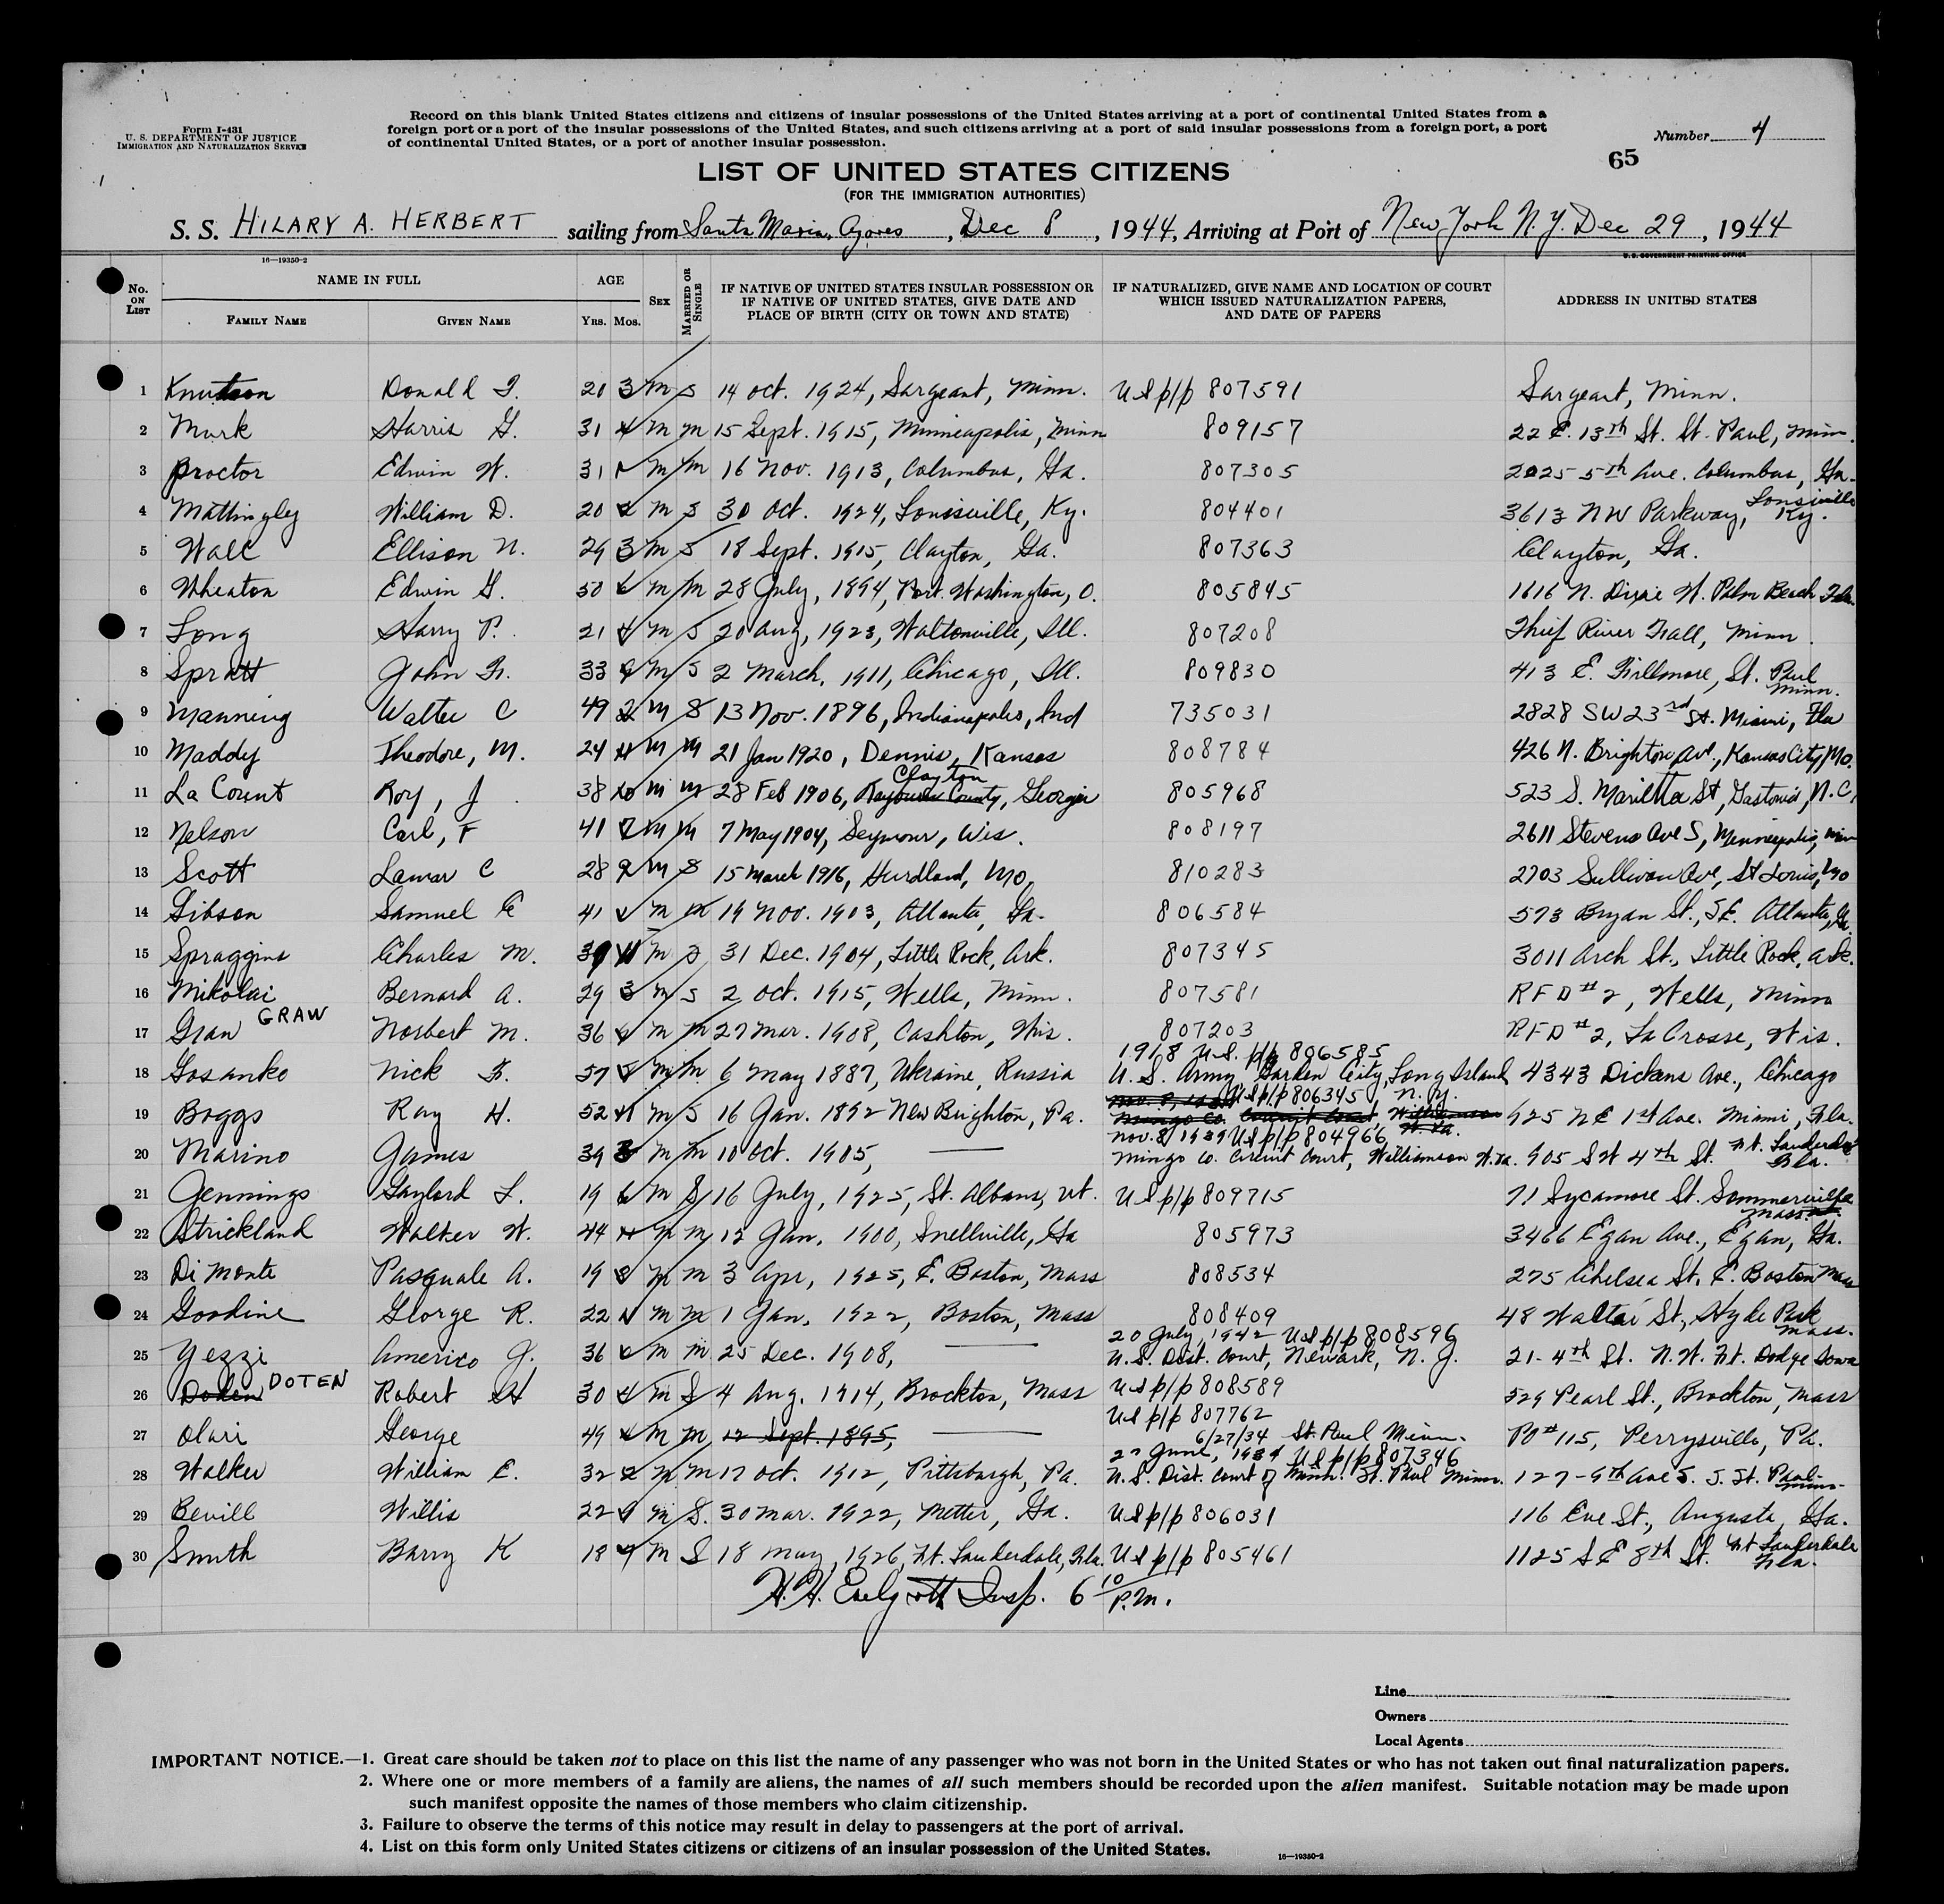 Form I-431
U. S. DEPARTMENT OF JUSTICE
IMMIGRATION AND NATURALIZATION SERVICE
Record on this blank United States citizens and citizens of insular possessions of the United States arriving at a port of continental United States from a
foreign port or a port of the insular possessions of the United States, and such citizens arriving at a port of said insular possessions from a foreign port, a port
of continental United States, or a port of another insular possession.
Number 4
65
LIST OF UNITED STATES CITIZENS
(FOR THE IMMIGRATION AUTHORITIES)
S. S. HILARY A. HERBERT sailing from Santa Maria, Azores, Dec 8, 1944, Arriving at Port of New York N.Y. Dec 29, 1944
16—19350-2
U. S. GOVERNMENT PRINTING OFFICE
No. ON LIST NAME IN FULL FAMILY NAME GIVEN NAME AGE YRS. MOS. SEX MARRIED OR SINGLE IF NATIVE OF UNITED STATES INSULAR POSSESSION OR IF NATIVE OF UNITED STATES, GIVE DATE AND PLACE OF BIRTH (CITY OR TOWN AND STATE) IF NATURALIZED, GIVE NAME AND LOCATION OF COURT WHICH ISSUED NATURALIZATION PAPERS, AND DATE OF PAPERS ADDRESS IN UNITED STATES
1 Knutson Donald 20 3 m s 14 Oct. 1924, Sargeant, Minn. US p/p 807591 Sargeant, Minn.
2 Mark Harris G. 31 m m 15 Sept. 1915, Minneapolis, Minn 809157 22 E. 13th St. St. Paul, Minn.
3 Proctor Edwin W. 31 m m 16 Nov. 1913, Columbus, Ga. 807305 2025 5th Ave. Columbus, Ga.
4 Mattingley William D. 20 m s 30 Oct. 1924, Louisville, Ky. 804401 3613 NW Parkway, Louisville Ky.
5 Wall Ellison N. 29 3 m S 18 Sept. 1915, Clayton, Ga. 807363 Clayton, Ga.
6 Wheaton Edwin G. 50 m m 28 July, 1894, Port Washington, O. 805845 1616 N. Dixie W. Palm Beach Fla.
7 Long Harry P. 21 m S 20 Aug, 1923, Waltonville, Ill. 807208 Thief River Fall, Minn.
8 Spratt John Fr. 33 9 m S 2 March, 1911, Chicago, Ill. 809830 413 E. Fillmore, St. Paul Minn.
9 Manning Walter C 49 m S 13 Nov. 1896, Indianapolis, Ind 735031 2828 SW 23rd St. Miami, Fla
10 Maddy Theodore, M. 24 11 m m 21 Jan 1920, Dennis, Kansas 808784 426 N. Brighton Av., Kansas City, Mo.
11 La Count Roy, J 38 10 m m 28 Feb 1906, Clayton County, Georgia 805968 523 S. Marietta St, Gastonia, N.C.
12 Nelson Carl, F 41 7 m m 7 May 1904, Seymour, Wis. 808197 2611 Stevens Ave S, Minneapolis, Min
13 Scott Lamar C 28 9 m S 15 March 1916, Hurdland, Mo, 810283 2703 Sullivan Ave, St Louis, Mo
14 Gibson Samuel 41 m m 19 Nov. 1903, Atlanta, Ga. 806584 573 Bryan St., S.E. Atlanta, Ga.
15 Spraggins Charles M. 39 11 m s 31 Dec. 1904, Little Rock, Ark. 807345 3011 Arch St., Little Rock, Ark.
16 Mikolai Bernard A. 29 3 m s 2 Oct. 1915, Wells, Minn. 807581 RFD #2, Wells, Minn
17 Grau GRAW Norbert M. 36 9 m m 27 Mar. 1908, Cashton, Wis. 807203 RFD #2, La Crosse, Wis.
1918 U.S. p/p 806585
18 Gosanko Nick 57 m m 6 May 1887, Ukraine, Russia U.S. Army, Garden City, Long Island N.Y. 4343 Dickens Ave., Chicago
19 Boggs Ray H. 52 11 m S 16 Jan. 1892 New Brighton, Pa. US p/p 806345 925 NE 1st Ave. Miami, Fla.
Nov. 8, 1939 US p/p 804966
20 Marino James 39 m m 10 Oct. 1905, — Mingo Co. Circuit Court, Williamson W. Va. 905 SW 4th St. Ft. Lauderdale Fla.
21 Jennings Gaylord L. 19 m S 16 July, 1925, St. Albans, Vt. US p/p 809715 71 Sycamore St. Sommerville Mass.
22 Strickland Walker W. 44 11 m m 12 Jan. 1900, Snellville, Ga 805973 3466 Egan Ave., Egan, Ga.
23 Di Monte Pasquale A. 19 8 m m 3 Apr, 1925, E. Boston, Mass 808534 275 Chelsea St. E. Boston Mass
24 Goodine George R. 22 11 m m 1 Jan, 1922, Boston, Mass 808409 48 St., Hyde Park Mass.
20 July, 1942 US p/p 808596
25 Yezzi Americo J. 36 m m 25 Dec. 1908, — U.S. Dist. Court, Newark, N.J. 21-4th St. N.W. Ft. Dodge Iowa
26 Doten DOTEN Robert 30 4 m S 4 Aug. 1914, Brockton, Mass US p/p 808589 529 Pearl St., Brockton, Mass
US p/p 807762
27 Olari George 49 m m 12 Sept. 1895, — 6/27/34 St. Paul Minn. PO #115, Perrysville, Pa.
June, 1934 US p/p 807346
28 Walker William E. 32 2 m m 17 Oct. 1912, Pittsburgh, Pa. U.S. Dist. Court of Minn. St. Paul Minn. 127-9th Ave S. S. St. Paul Minn.
29 Bevill Willis 22 9 m S. 30 Mar. 1922, Metter, Ga. US p/p 806031 116 Eve St., Augusta, Ga.
30 Smith Barry K 18 7 m S 18 May, 1926, Ft. Lauderdale, Fla. US p/p 805461 1125 SE 8th St. Ft Lauderdale Fla.
H.H. Insp. 6 10 P.M.
Line
Owners
Local Agents
IMPORTANT NOTICE.—1. Great care should be taken not to place on this list the name of any passenger who was not born in the United States or who has not taken out final naturalization papers.
2. Where one or more members of a family are aliens, the names of all such members should be recorded upon the alien manifest. Suitable notation may be made upon
such manifest opposite the names of those members who claim citizenship.
3. Failure to observe the terms of this notice may result in delay to passengers at the port of arrival.
4. List on this form only United States citizens or citizens of an insular possession of the United States.
16—19350-2